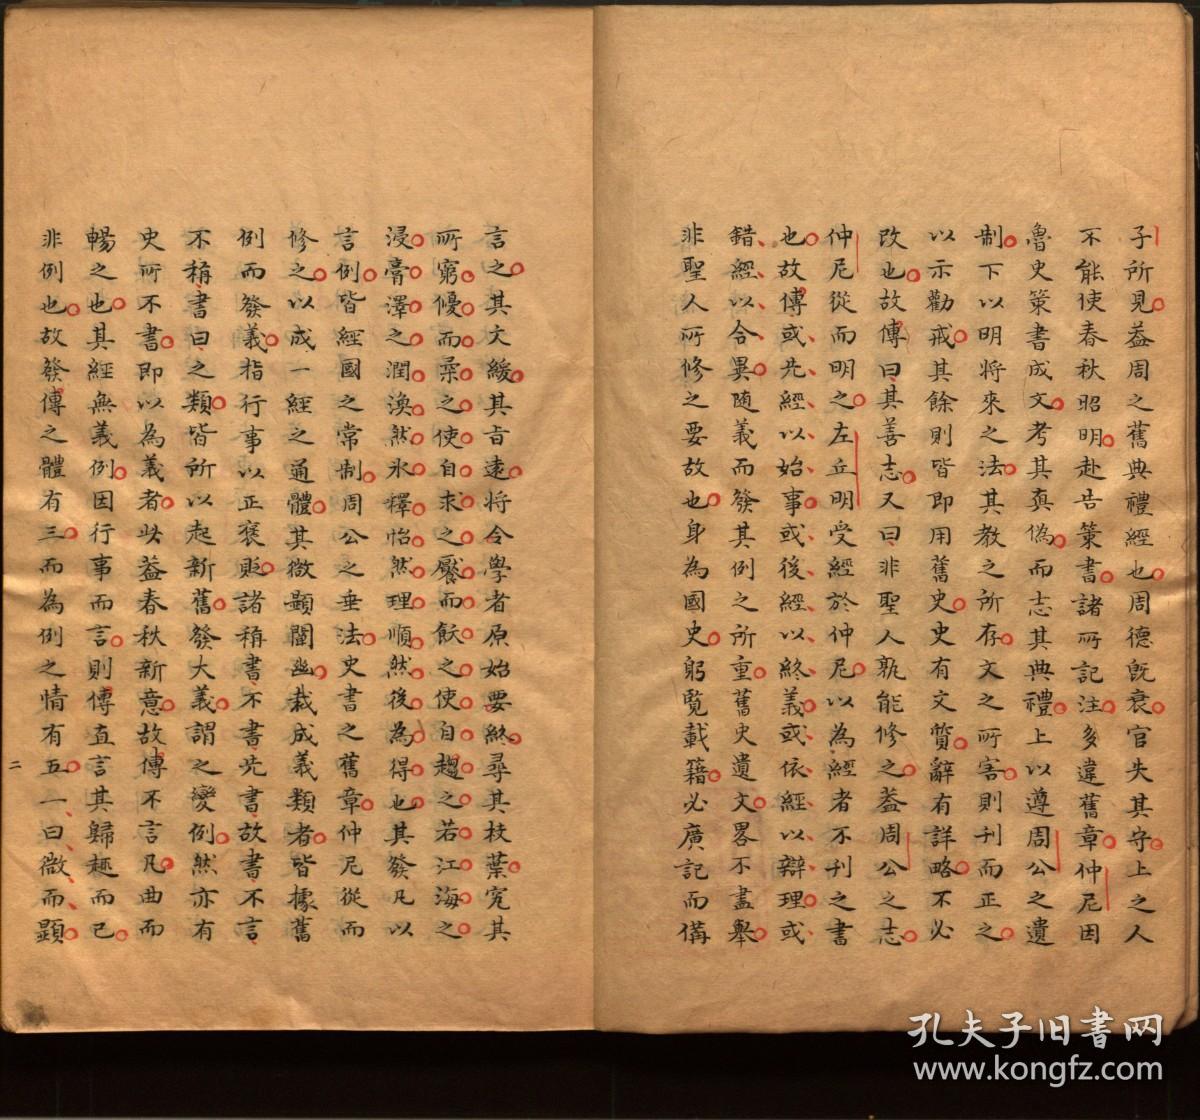 子所見葢周之舊典禮經也周德旣衰官失其守上之人
不能使春秋昭明赴告策書諸所記注多違舊章仲尼因
魯史策書成文考其真偽而志其典禮上以遵周公之遺
制下以明將來之法其教之所存文之所害則刊而正之
以示勸戒其餘則皆即用舊史史有文質辭有詳略不必
改也故傳曰其善志又曰非聖人孰能修之葢周公之志
仲尼從而明之左丘明受經於仲尼以為經者不刊之書
也故傳或先經以始事或後經以終義或依經以辯理或
錯經以合異随義而發其例之所重舊史遺文畧不盡舉
非聖人所修之要故也身為國史躬覽載籍必廣記而備
言之其文緩其旨遠將令學者原始要終尋其枝葉究其
所窮優而柔之使自求之饜而飫之使自趨之若江海之
浸膏澤之潤渙然氷釋怡然理順然後為得也其發凡以
言例皆經國之常制周公之垂法史書之舊章仲尼從而
修之以成一經之通體其微顯闡幽裁成義類者皆據舊
例而發義指行事以正褒貶諸稱書不書先書故書不言
不稱書曰之類皆所以起新舊發大義謂之變例然亦有
史所不書即以為義者此葢春秋新意故傳不言凡曲而
暢之也其經無義例因行事而言則傳直言其歸趣而已
非例也故發傳之體有三而為例之情有五一曰微而顯
二
孔夫子旧书网
www.kongfz.com